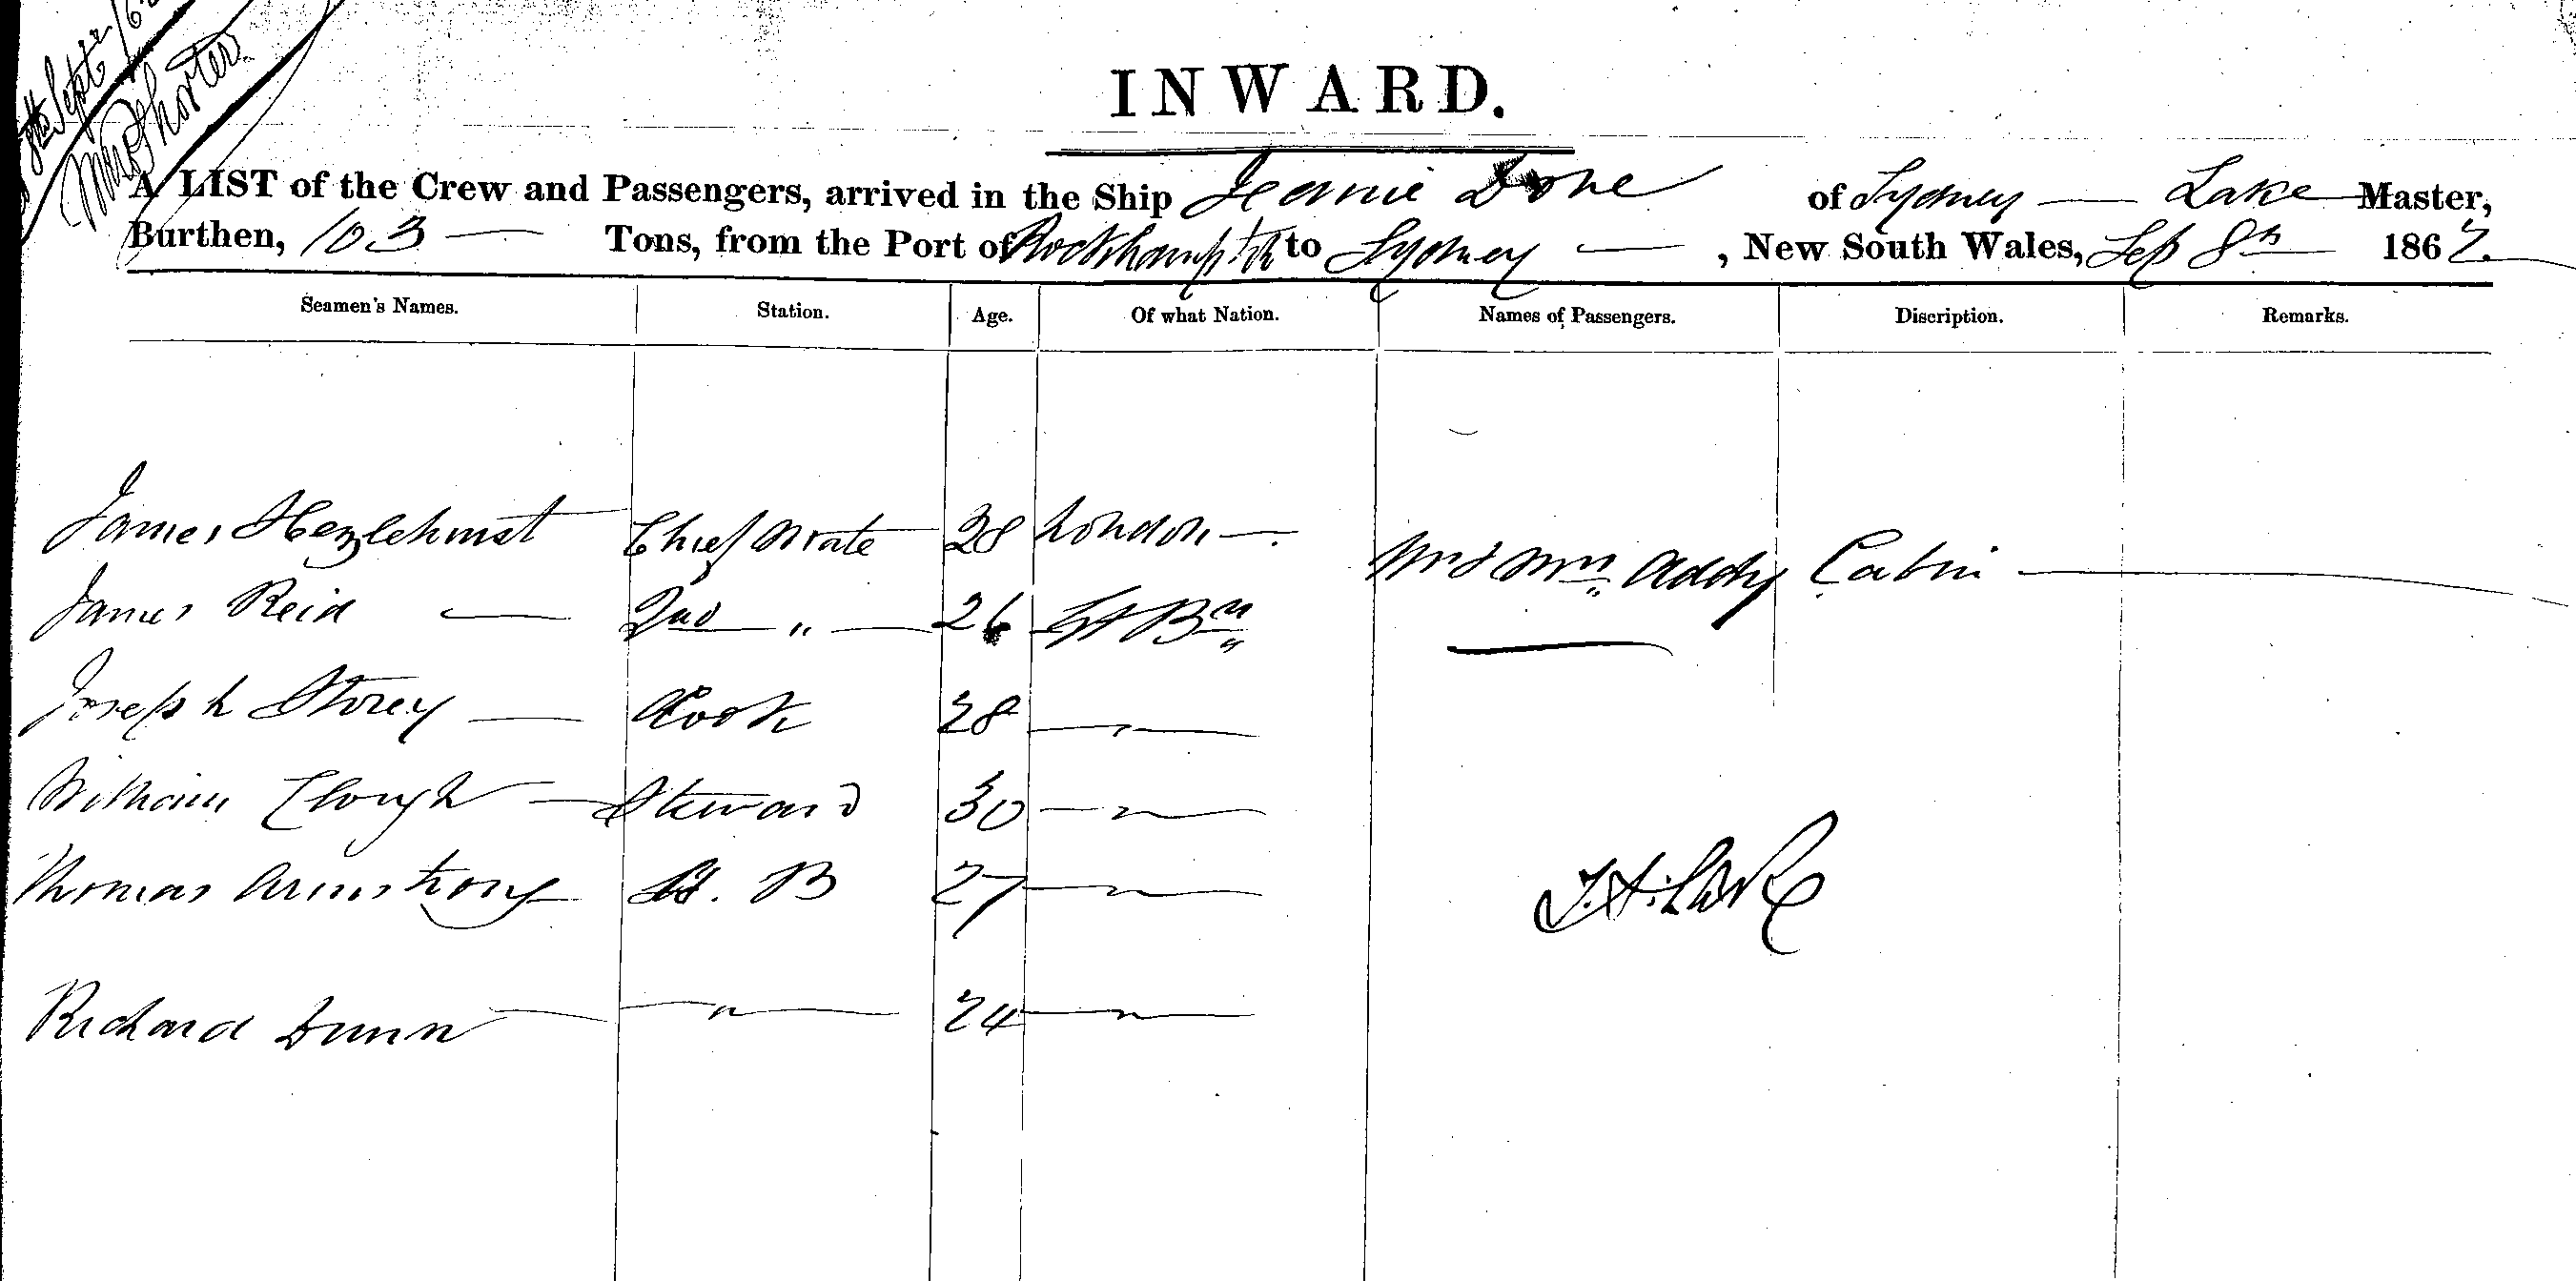 8th Sept
INWARD.
A LIST of the Crew and Passengers, arrived in the Ship Jeanie Dove of Sydney — Lake Master,
Burthen, 103 — Tons, from the Port of Rockhampton to Sydney — , New South Wales, Sep 8th 1862.
Seamen's Names. Station. Age. Of what Nation. Names of Passengers. Discription. Remarks.
James Hezlehurst Chief Mate 28 London —
Mr & Mrs Addy Cabin —
James Reid — 2nd " — 26 Gt Bn
Joseph Storey — Cook 28 — " —
William Clough — Steward 30 — " —
Thomas Armstrong A. B 27 — " —
T. H. Lake
Richard Dunn — " — 24 — " —